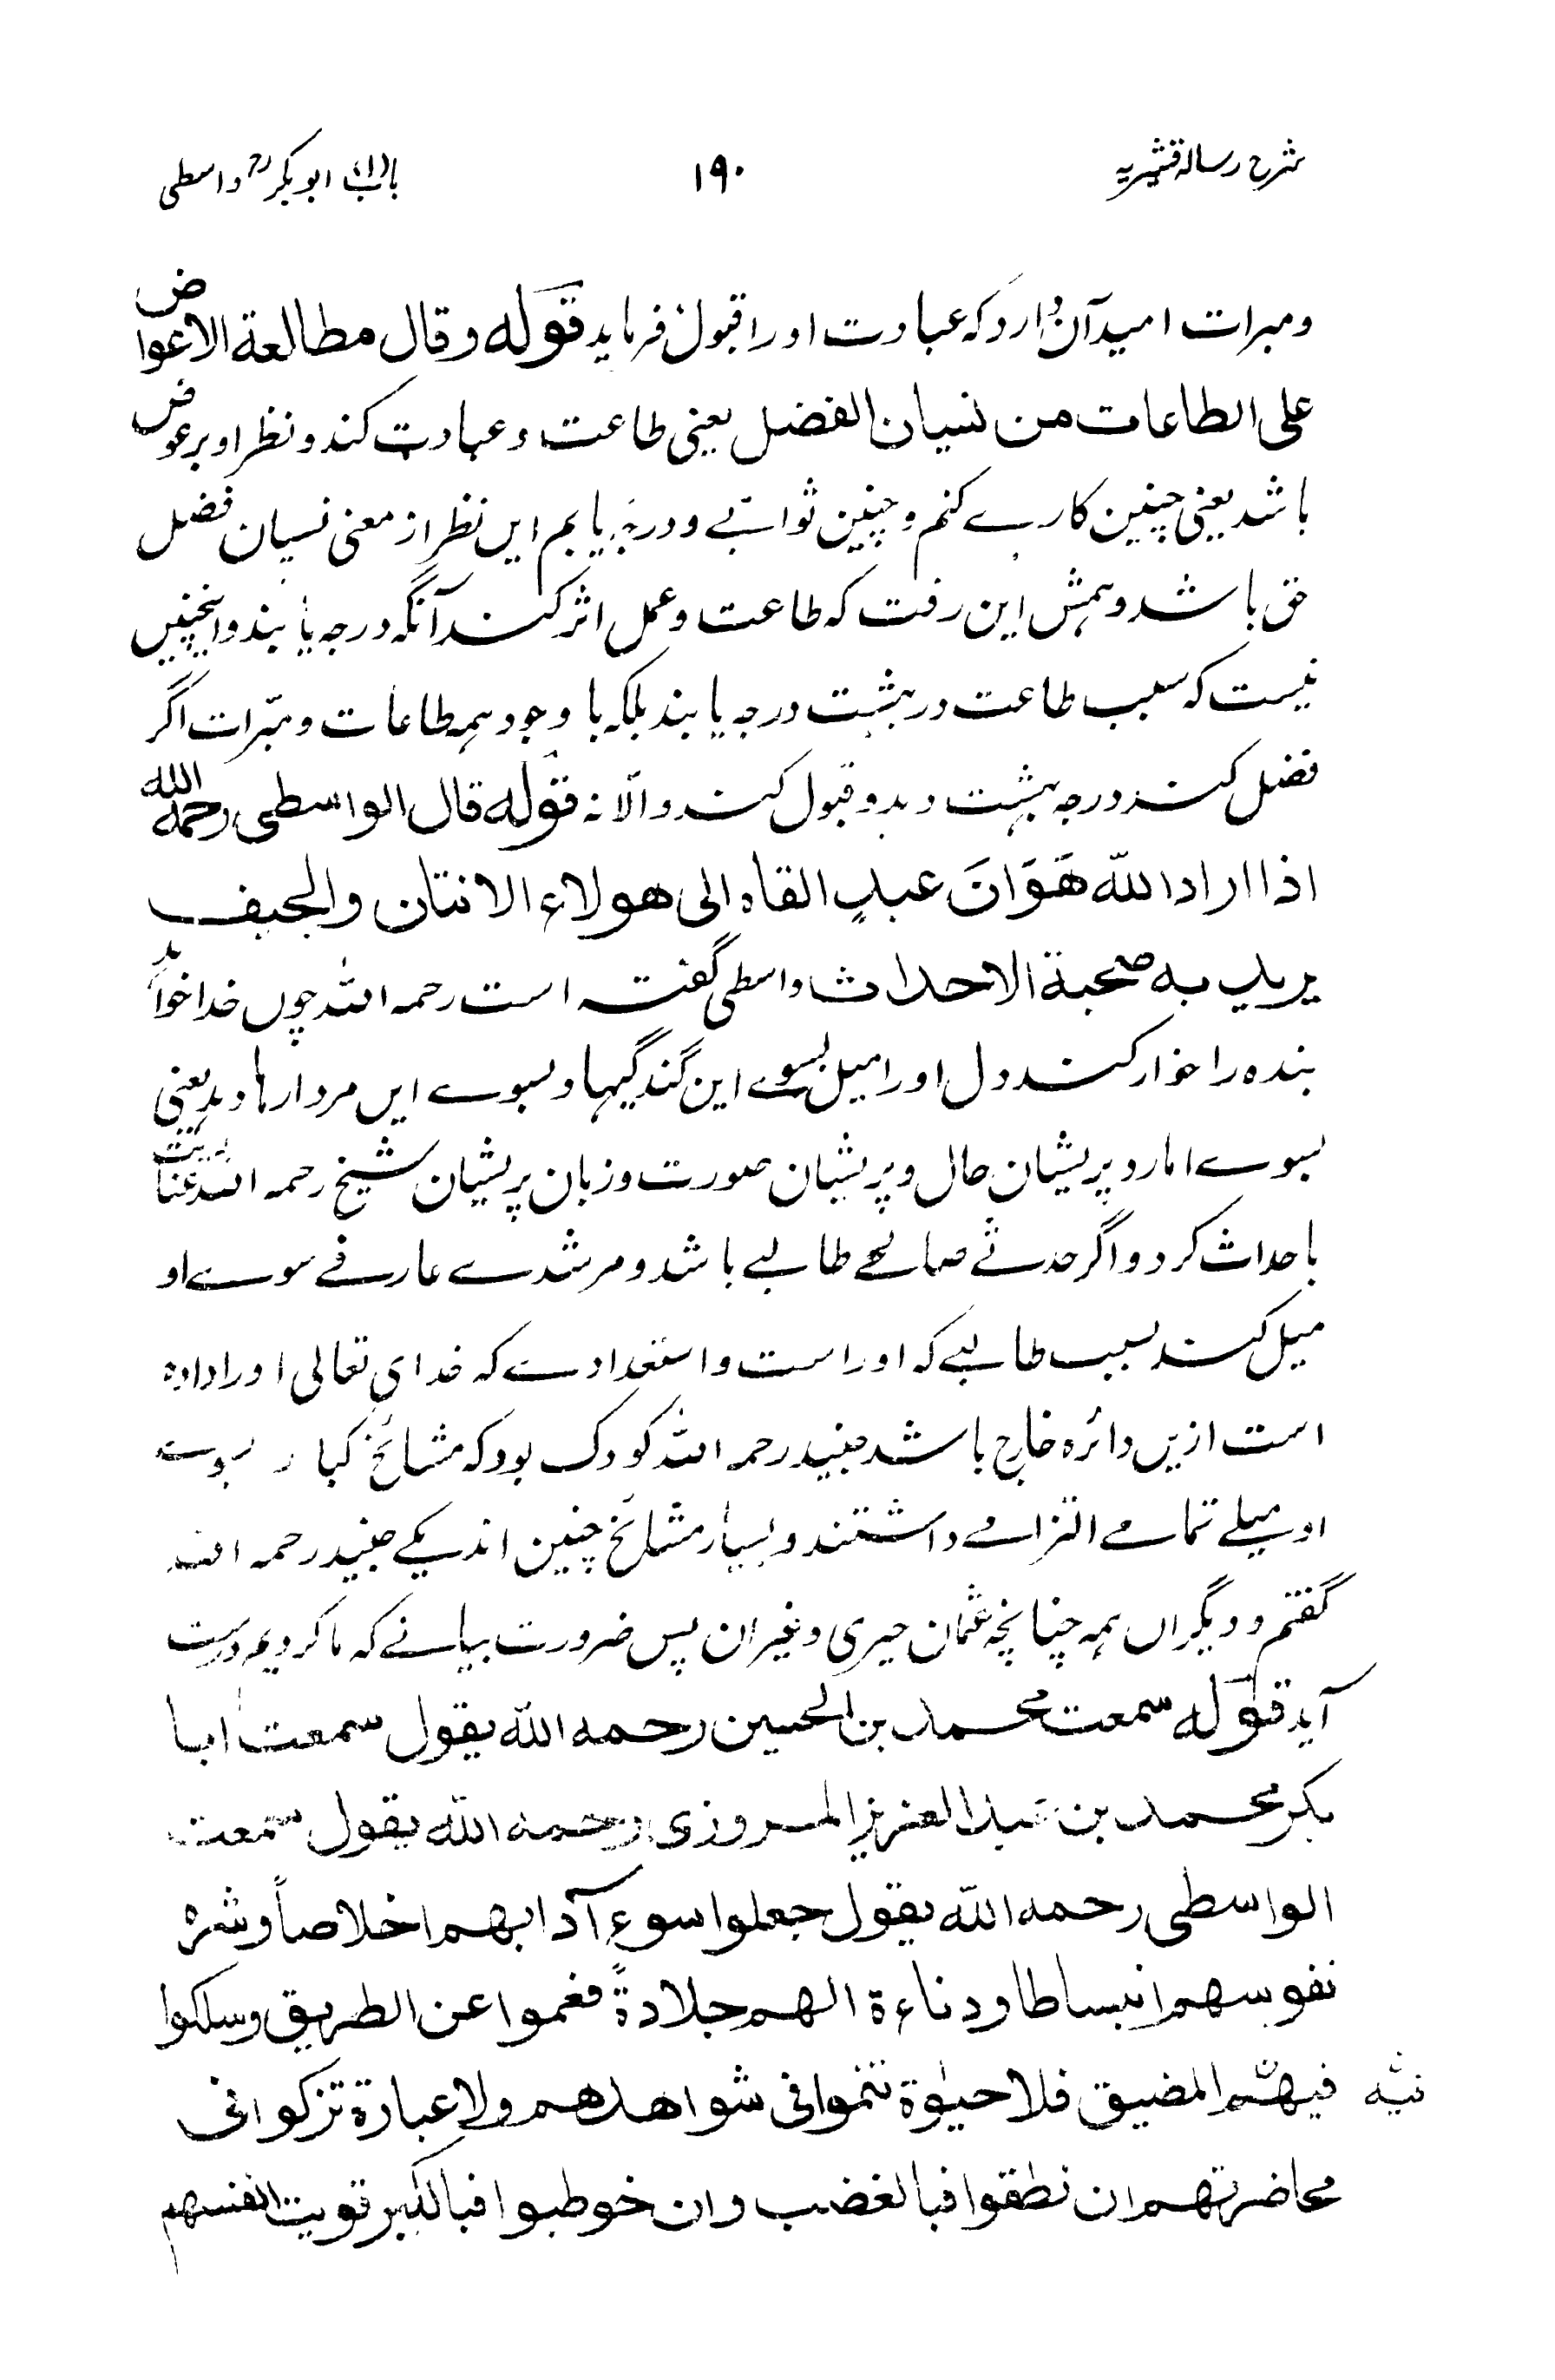 شرح رسالہ قشیریہ
۱۹۰
باب(۱) ابوبکر رح واسطی
ومبرات امید آن دارد کہ عبادت اورا قبول فرماید قوله وقال مطالعة الاعواض
علی الطاعات من نسیان الفضل یعنی طاعت و عبادت کند و نظر او بر عوض
باشد یعنی چنین کارے کنم و چنین ثوابے و درجہ یابم این نظر از معنی نسیان فضل
حق باشد و ہمش این رفت کہ طاعت و عمل اثر کند آنگہ درجہ یابند و اینچنیں
نیست کہ سبب طاعت در بہشت درجہ یابند بلکہ با وجود ہمہ طاعات و مبرّات اگر
فضل کند درجہ بہشت دہد و قبول کند و الّا نہ قوله قال الواسطی رحمه الله
اذا اراد الله هَوَانَ عبدٍ القاه الی هولاء الانتان والجیف
یرید به صحبة الاحداث واسطی گفتہ است رحمہ اللہ چوں خدا خواہد
بندہ را خوار کند دل اورا میل بسوے این گندگیہا و بسوے ایں مردارہا دہد یعنی
بسوے امارد پریشان حال و پریشان صورت و زبان پریشان شیخ رحمہ اللہ
باحداث کرد و اگر حدثے صالحے طالبے باشد و مرشدے عارفے سوے او
میل کند بسبب طالبے کہ اوراست و استعدادے کہ خدای تعالی اورا دادہ
است ازیں دائرہ خارج باشد جنید رحمہ اللہ کودک بود کہ مشائخ کبار بسوے
او میلے تمامے التزامے داشتند و بسیار مشائخ چنین اند یکے جنید رحمہ اللہ
گفتم و دیگراں ہمہ چنانچہ عثمان حیری و غیران پس ضرورت بیانے کہ ما کردیم درست
آید قوله سمعت محمد بن الحسین رحمه الله یقول سمعت ابا
بکر محمد بن عبد العزیز المروزی رحمه الله یقول سمعت
الواسطی رحمه الله یقول جعلوا سوء آدابهم اخلاصاً وشره
نفوسهم انبساطا ودناءة الهمم جلادةً فعموا عن الطریق وسلکوا
فیه المضیق فلا حیٰوة تنموا فی شواهدهم ولا عبارة تزکوا فی
محاضرتهم ان نطقوا فبالغضب وان خوطبوا فبالکبر توثب انفسهم